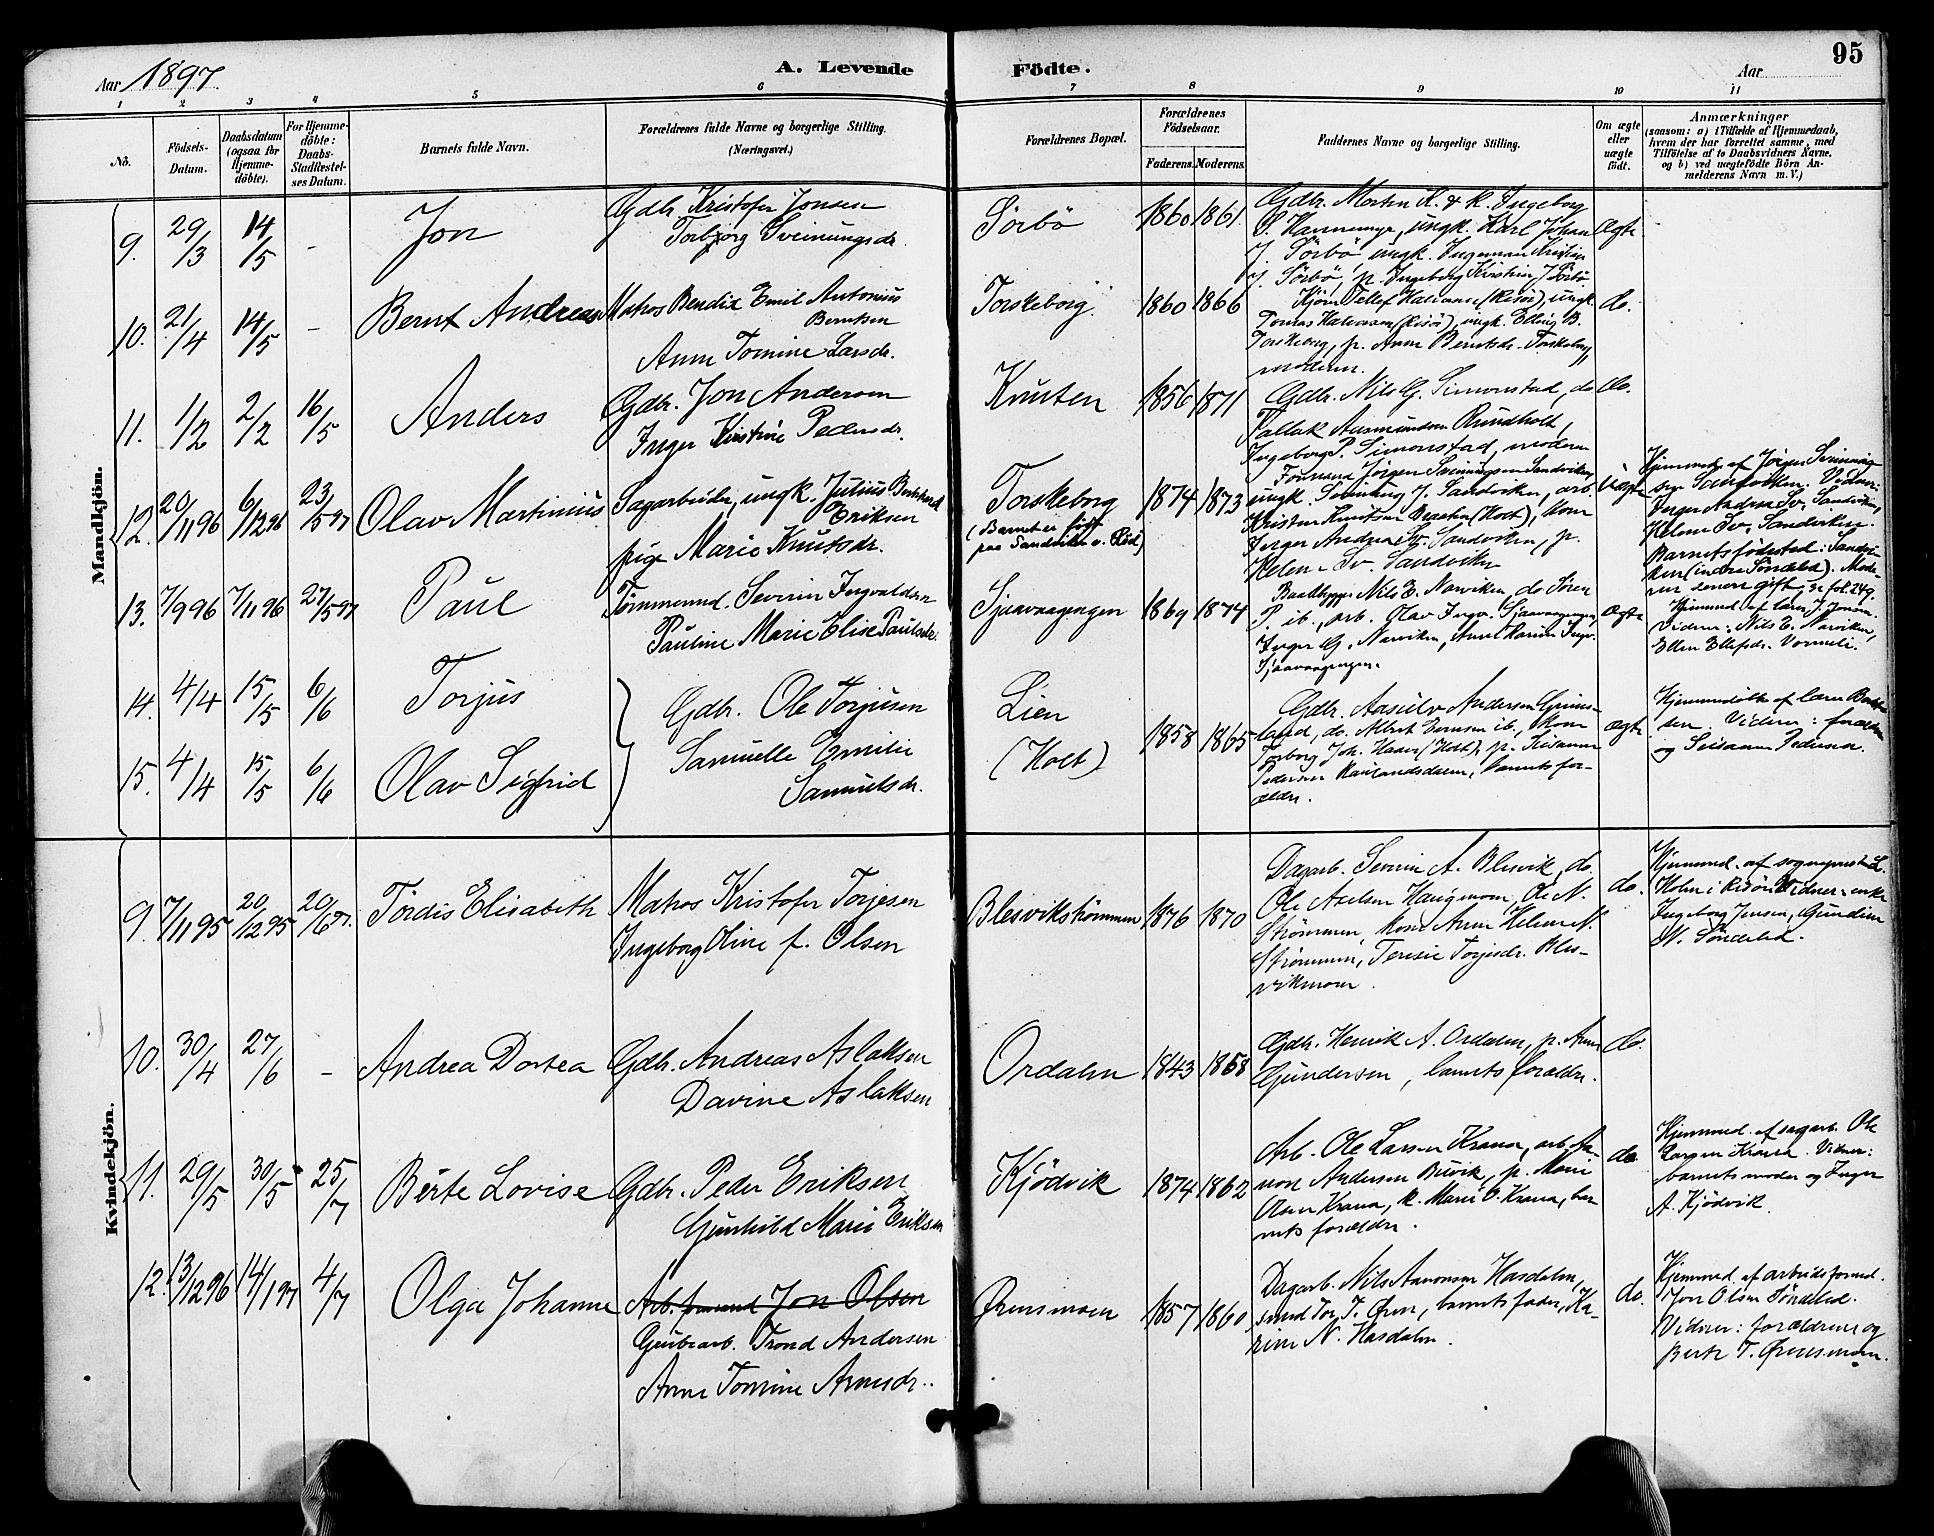 95
Aar 1897.
A. Levende Födte.
Aar
1 2 3 4 5 6 7 8 9 10 11
No.
Födsels-Datum.
Daabsdatum (ogsaa for Hjemme-döbte).
For Hjemme-döbte: Daabs-Stadfæstel-ses Datum.
Barnets fulde Navn.
Forældrenes fulde Navne og borgerlige Stilling. (Næringsvei.)
Forældrenes Bopæl.
Forældrenes Födselsaar.
Faderens. Moderens.
Faddernes Navne og borgerlige Stilling.
Om ægte eller uægte födt.
Anmærkninger
(saasom: a) i Tilfælde af Hjemmedaab,
hvem der har forrettet samme, med
Tilföielse af to Daabsvidners Navne.
og b) ved uægtefödte Börn An-
melderens Navn m. V.)
Mandkjön.
9. 29/3 14/5 - Jon
Gdbr. Kristofer Jonsen
Torbjørg Sveinungsdr.
Sørbø 1860 1861
Gdbr. Morten K. & k. Ingeborg
S. Hammermyr, ungk. Karl Johan
J. Sørbø, ungk. Ingeman Kristian
J. Sørbø, p. Ingeborg Kirstine J. Sørbø
Ægte
10. 21/4 14/5 - Bernt Andreas
Matros Bendix Emil Antonius
Berntsen
Anne Tomine Larsdr.
Torskeborg. 1860 1866
Tellef Halvorsen (Risör), ungk.
Tomas Halvorsen (Risör), ungk. Elling B.
Torskeborg, p. Anne Berntsdr. Torskeborg,
moderen.
do.
11. 1/2 2/2 16/5 Anders
Gdbr. Jon Andersen
Inger Kirstine Pedersdr.
Knuten 1856 1871
Gdbr. Nils G. Simonstad, do
Tallak Aasmundsen Rundholt,
Ingeborg P. Simonstad, moderen
do.
12. 20/11 96 6/12 96 23/5 97 Olav Martinius
Sagarbeider, ungk. Julius
Eriksen
pige Marie Knutsdr.
Torskeborg
(Barnet er født
paa Sandviken v. Röd)
1874 1873
Jörgen Sveinungsen Sandviken,
ungk. Sveinung J. Sandviken, arb.
Kristen Knutsen (Holt), kone
Inger Andrea Sv. Sandviken, p.
Helene Sv. Sandviken
Uægte
Hjemmed. af Jörgen Sveinung-
sen Sandviken. Vidner:
Inger Andrea Sv. Sandviken,
Helene Sv. Sandviken.
Barnets födested: Sandvi-
ken (indre Söndeled). Mode-
ren senere gift, se fol. 249.
13. 7/9 96 7/11 96 27/5 97 Paul
Tømmermd. Severin Ingvaldsen
Pauline Marie Elise Paulsdr.
Sjaavaagen 1869 1874
Nils E. Narviken, do Sören
P. ib., arb. Olav Ingv. Sjaavaagen,
Inger G. Narviken, Anne Karine Ingv.
Sjaavaagen.
ægte
Hjemmed. af lærer J. Jonsen.
Vidner: Nils E. Narviken,
Ellen Ellefsdr. Vormeli.
14. 4/4 15/5 6/6 Torjus
15. 4/4 15/5 6/6 Olav Sigfrid
Gdbr. Ole Torjusen
Samuelle Emilie
Samuelsdr.
Lien
(Holt)
1858 1865
Gdbr. Aasulv Andersen
land, do. Albert Evensen ib., kone
Torborg Joh. (Holt), p. Susanne
Pedersen, barnets for-
ældre.
ægte
Hjemmedøbte af lærer
Vidner: forældrene
og Susanne Pedersen.
Kvindekjön.
9. 7/11 95 20/12 95 20/6 97. Tordis Elisabeth
Matros Kristofer Torjesen
Ingeborg Oline f. Olsen
Blesvikstrømmen 1876 1870
Dagarb. Severin A. Blesvik, do.
Ole Axelsen Haugmoen, Ole N.
Strømmen, kone Anne Helene N.
Strømmen, Teresie Torjesdr. Bles-
vikmoen.
do.
Hjemmed. af sogneprest L.
Holm i Risör. Vidner: enke
Ingeborg Jensen, Gundine
N. Sönderled.
10. 30/4 27/6 - Andrea Dortea
Gdbr. Andreas Aslaksen
Davine Aslaksen
Ordalen 1843 1858
Gdbr. Henrik A. Ordalen, p. Anne
Gundersen, barnets forældre.
do.
11. 29/5 30/5 25/7 Berte Lovise
Gdbr. Peder Eriksen
Gunhild Marie Eriksen
Kjödvik 1874 1862
Arb. Ole Larsen Krana, arb. Aa-
non Andersen Buvik, p. Marie
Olsen Krana, k. Marie O. Krana, bar-
nets forældre.
do
Hjemmed. af sagarb. Ole
Larsen Krana. Vidner:
barnets moder og Inger
A. Kjödvik.
12. 13/12 96 14/1 97 4/7 Olga Johanne
Arb. formand Jon Olsen
Grubearb. Trond Andersen
Anne Tomine Arnesdr.
Ørensmoen 1857 1860
Dagarb. Nils Aanonsen Hasdalen,
smed Tor T. Øren, barnets fader, Ka-
rine N. Hasdalen.
do.
Hjemmed. af arbeidsformd.
Jon Olsen Söndeled.
Vidner: forældrene og
Berte T. Ørensmoen.